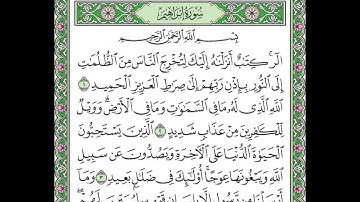 سُورَةُ إِبْرَاهِيمَ
بِسْمِ اللَّهِ الرَّحْمَٰنِ الرَّحِيمِ
الٓر ۚ كِتَٰبٌ أَنزَلْنَٰهُ إِلَيْكَ لِتُخْرِجَ ٱلنَّاسَ مِنَ ٱلظُّلُمَٰتِ
إِلَى ٱلنُّورِ بِإِذْنِ رَبِّهِمْ إِلَىٰ صِرَٰطِ ٱلْعَزِيزِ ٱلْحَمِيدِ ١
ٱللَّهِ ٱلَّذِي لَهُۥ مَا فِي ٱلسَّمَٰوَٰتِ وَمَا فِي ٱلْأَرْضِ ۗ وَوَيْلٌ
لِّلْكَٰفِرِينَ مِنْ عَذَابٍ شَدِيدٍ ٢ ٱلَّذِينَ يَسْتَحِبُّونَ
ٱلْحَيَوٰةَ ٱلدُّنْيَا عَلَى ٱلْآخِرَةِ وَيَصُدُّونَ عَن سَبِيلِ
ٱللَّهِ وَيَبْغُونَهَا عِوَجًا ۚ أُو۟لَٰٓئِكَ فِي ضَلَٰلٍۭ بَعِيدٍ ٣ وَمَآ